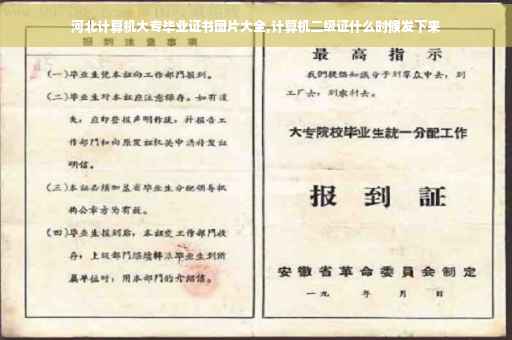 河北计算机大专毕业证书图片大全,计算机二级证什么时候发下来
报到注意事项
(一)毕业生凭本证向工作部门报到。
(二)毕业生对本证应注意保存。如有遗
失,应即登报声明作废,并报告工
作部门和向原发证机关申请补发证
明信。
(三)本证必须加盖省毕业生分配领导机
构公章方为有效。
(四)毕业生报到后,本证交工作部门收
存;上级部门
毕业生到所
属单位时,用本部门的介绍信。
最高指示
我们提倡知识分子到群众中去,到
工厂去,到农村去。
大专院校毕业生統一分配工作
报到証
安徽省革命委員会制定
一九 年 月 日